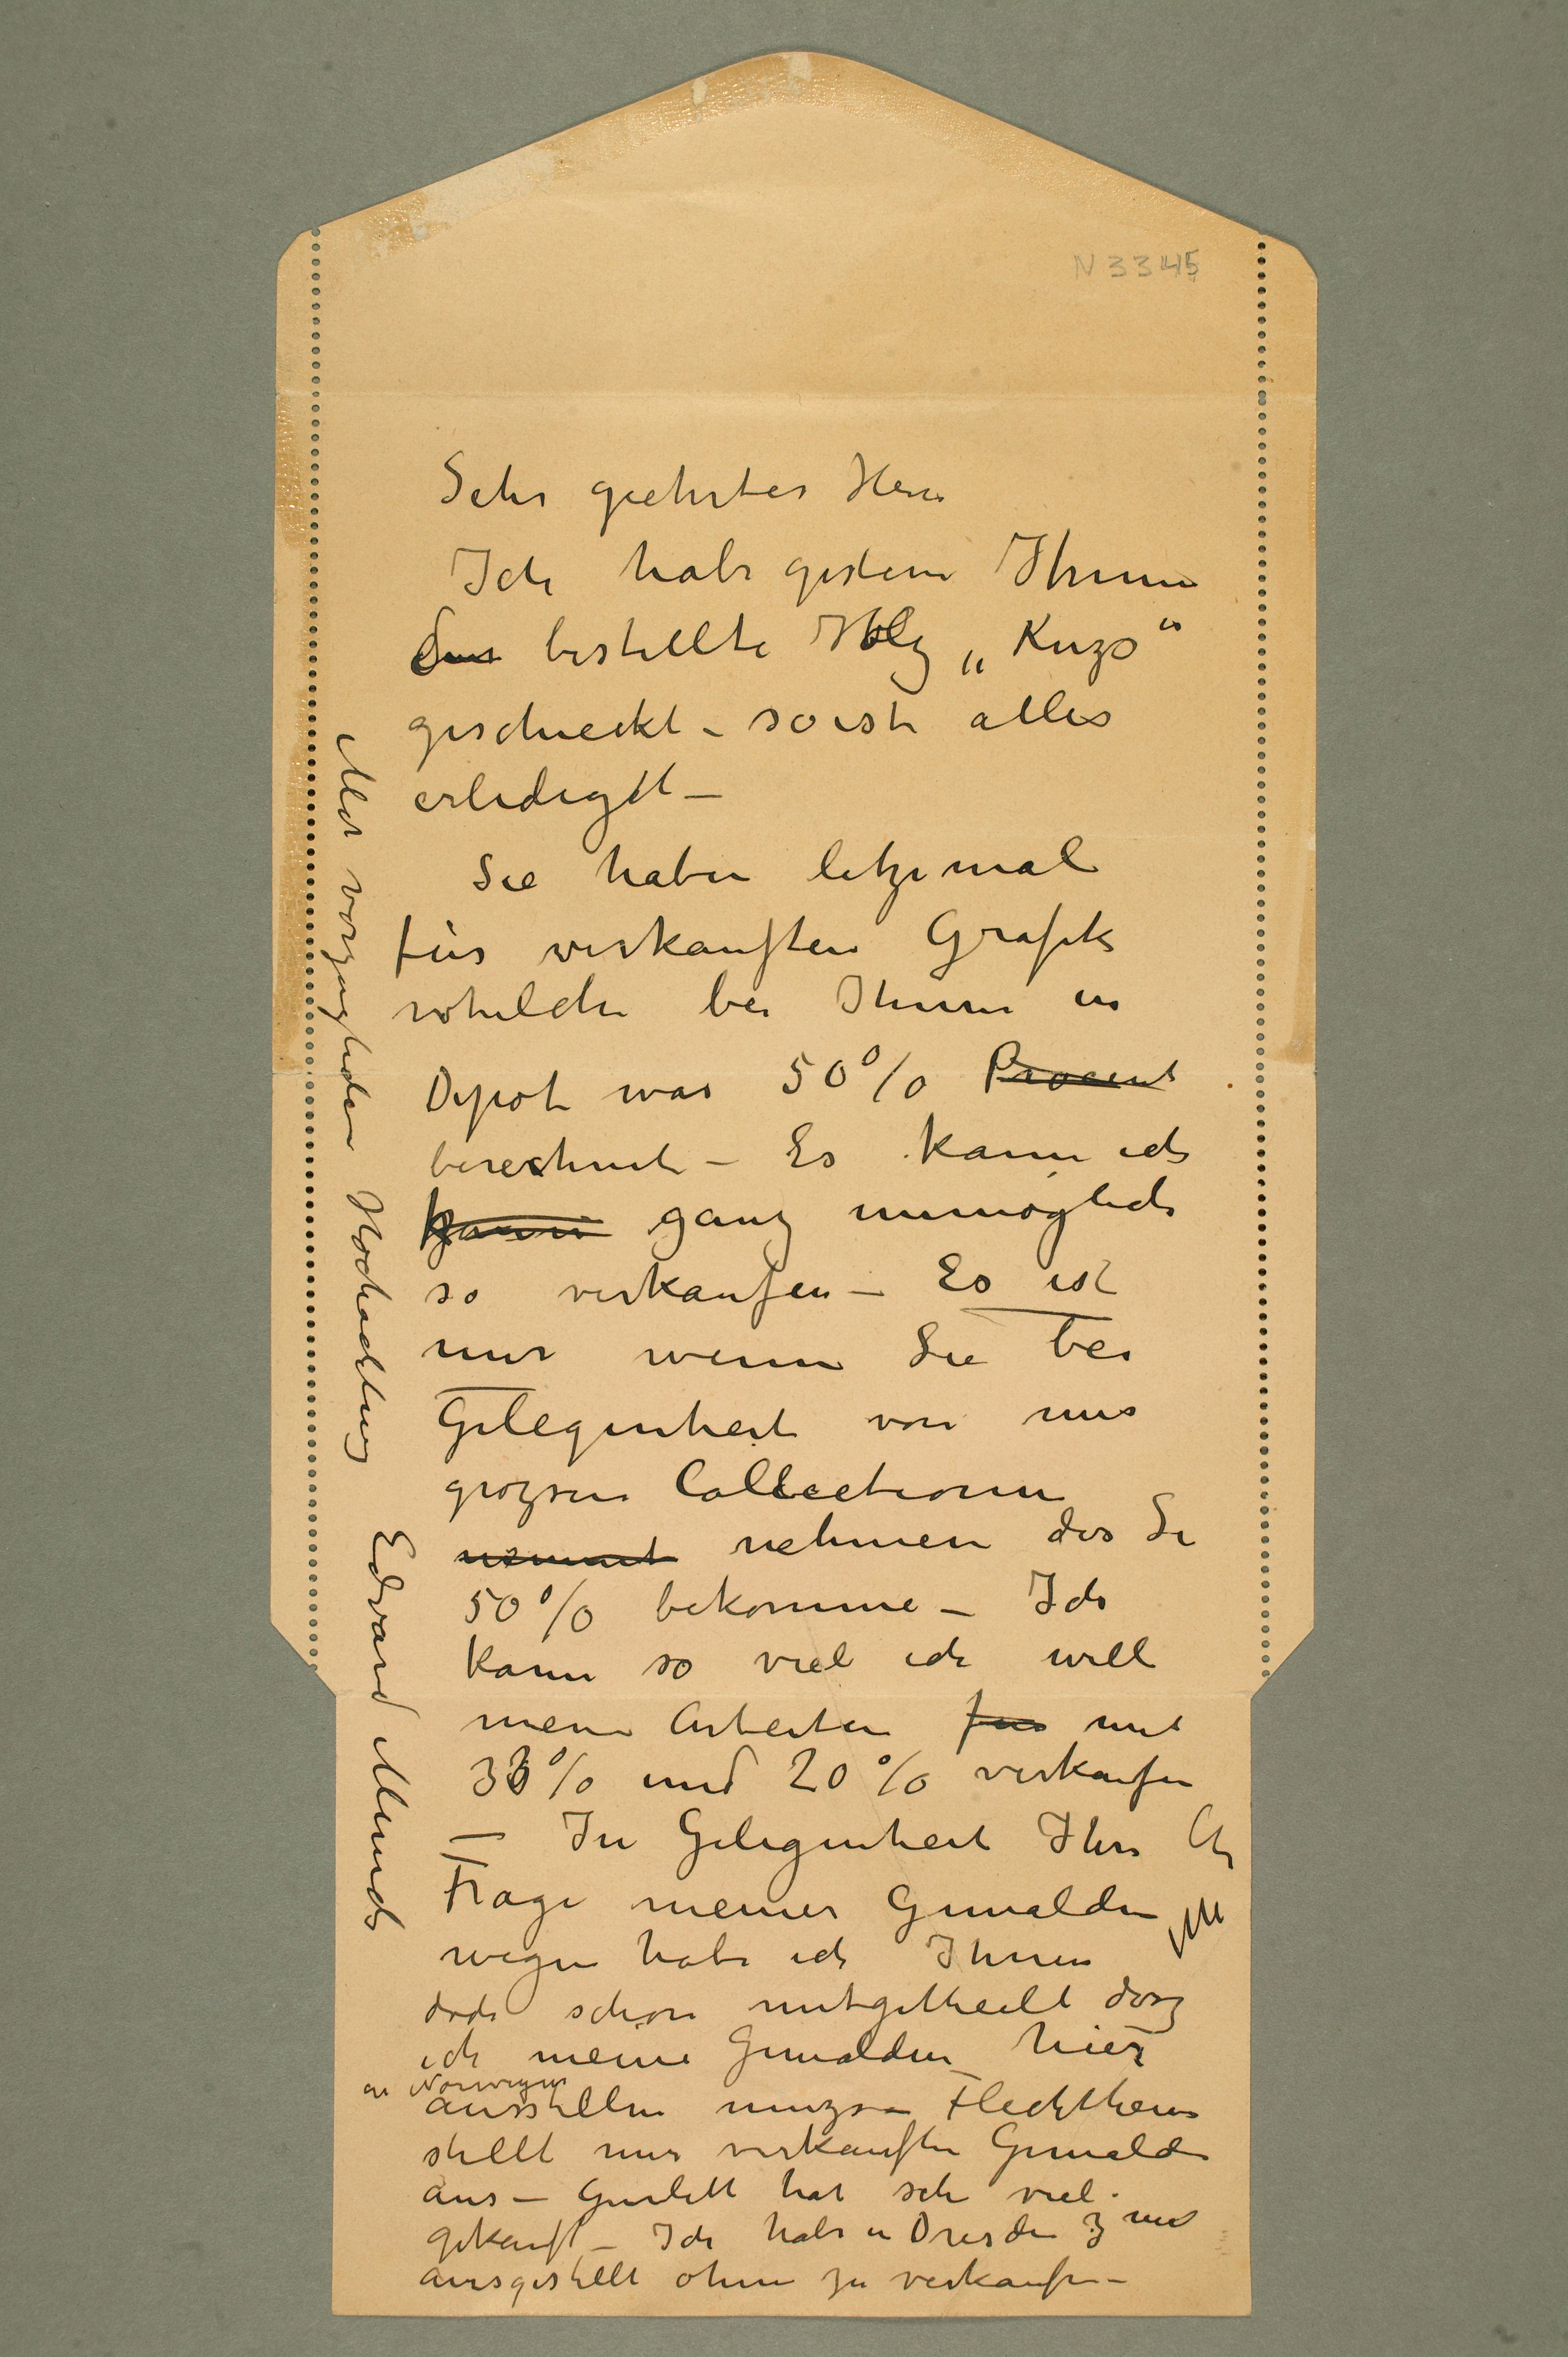 N 3345
Sehr geehrter Herr
Ich habe gestern Ihnen
das bestellte Holz „Kuzs“
geschieckt – so ist alles
erledigdt –
Sie haben letzemal
für verkauften Grafik
whelche bei Ihnen in
Depot war 50% Procent
berechnet – Es kann ich
kann ganz unmöglich
so verkaufen – Es ist
nur wenn Sie bei
Gelegenheit von mir
grozsen Collectionen
nemmt nehmen das Sie
50% bekomme – Ich
kann so viel ich will
meine Arbeiten für mit
33% und 20% verkaufen
– In Gelegenheit Ihre
Frage meiner Gemälden
wegen habe ich Ihnen
doch schon mitgetheilt dasz
ich meine Gemälden hier
in Norwegen
ausstellen muzs – Flechtheim
stellt nur verkauften Gemälde
aus – Gurlitt hat sehr viel
gekauft – Ich habe in Dresden 3 mal
ausgestellt ohne zu verkaufen –
Mit vorzuglichen Hochachtung
Edvard Munch